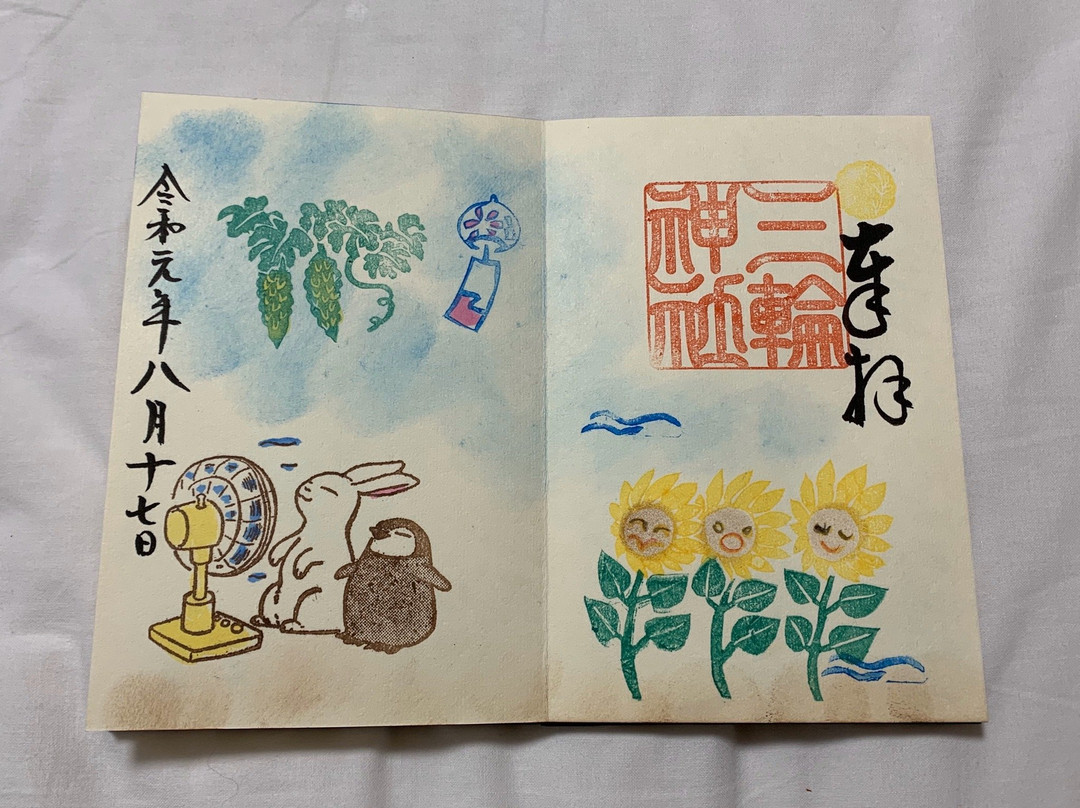 奉拝
三輪
神社
令和元年八月十七日